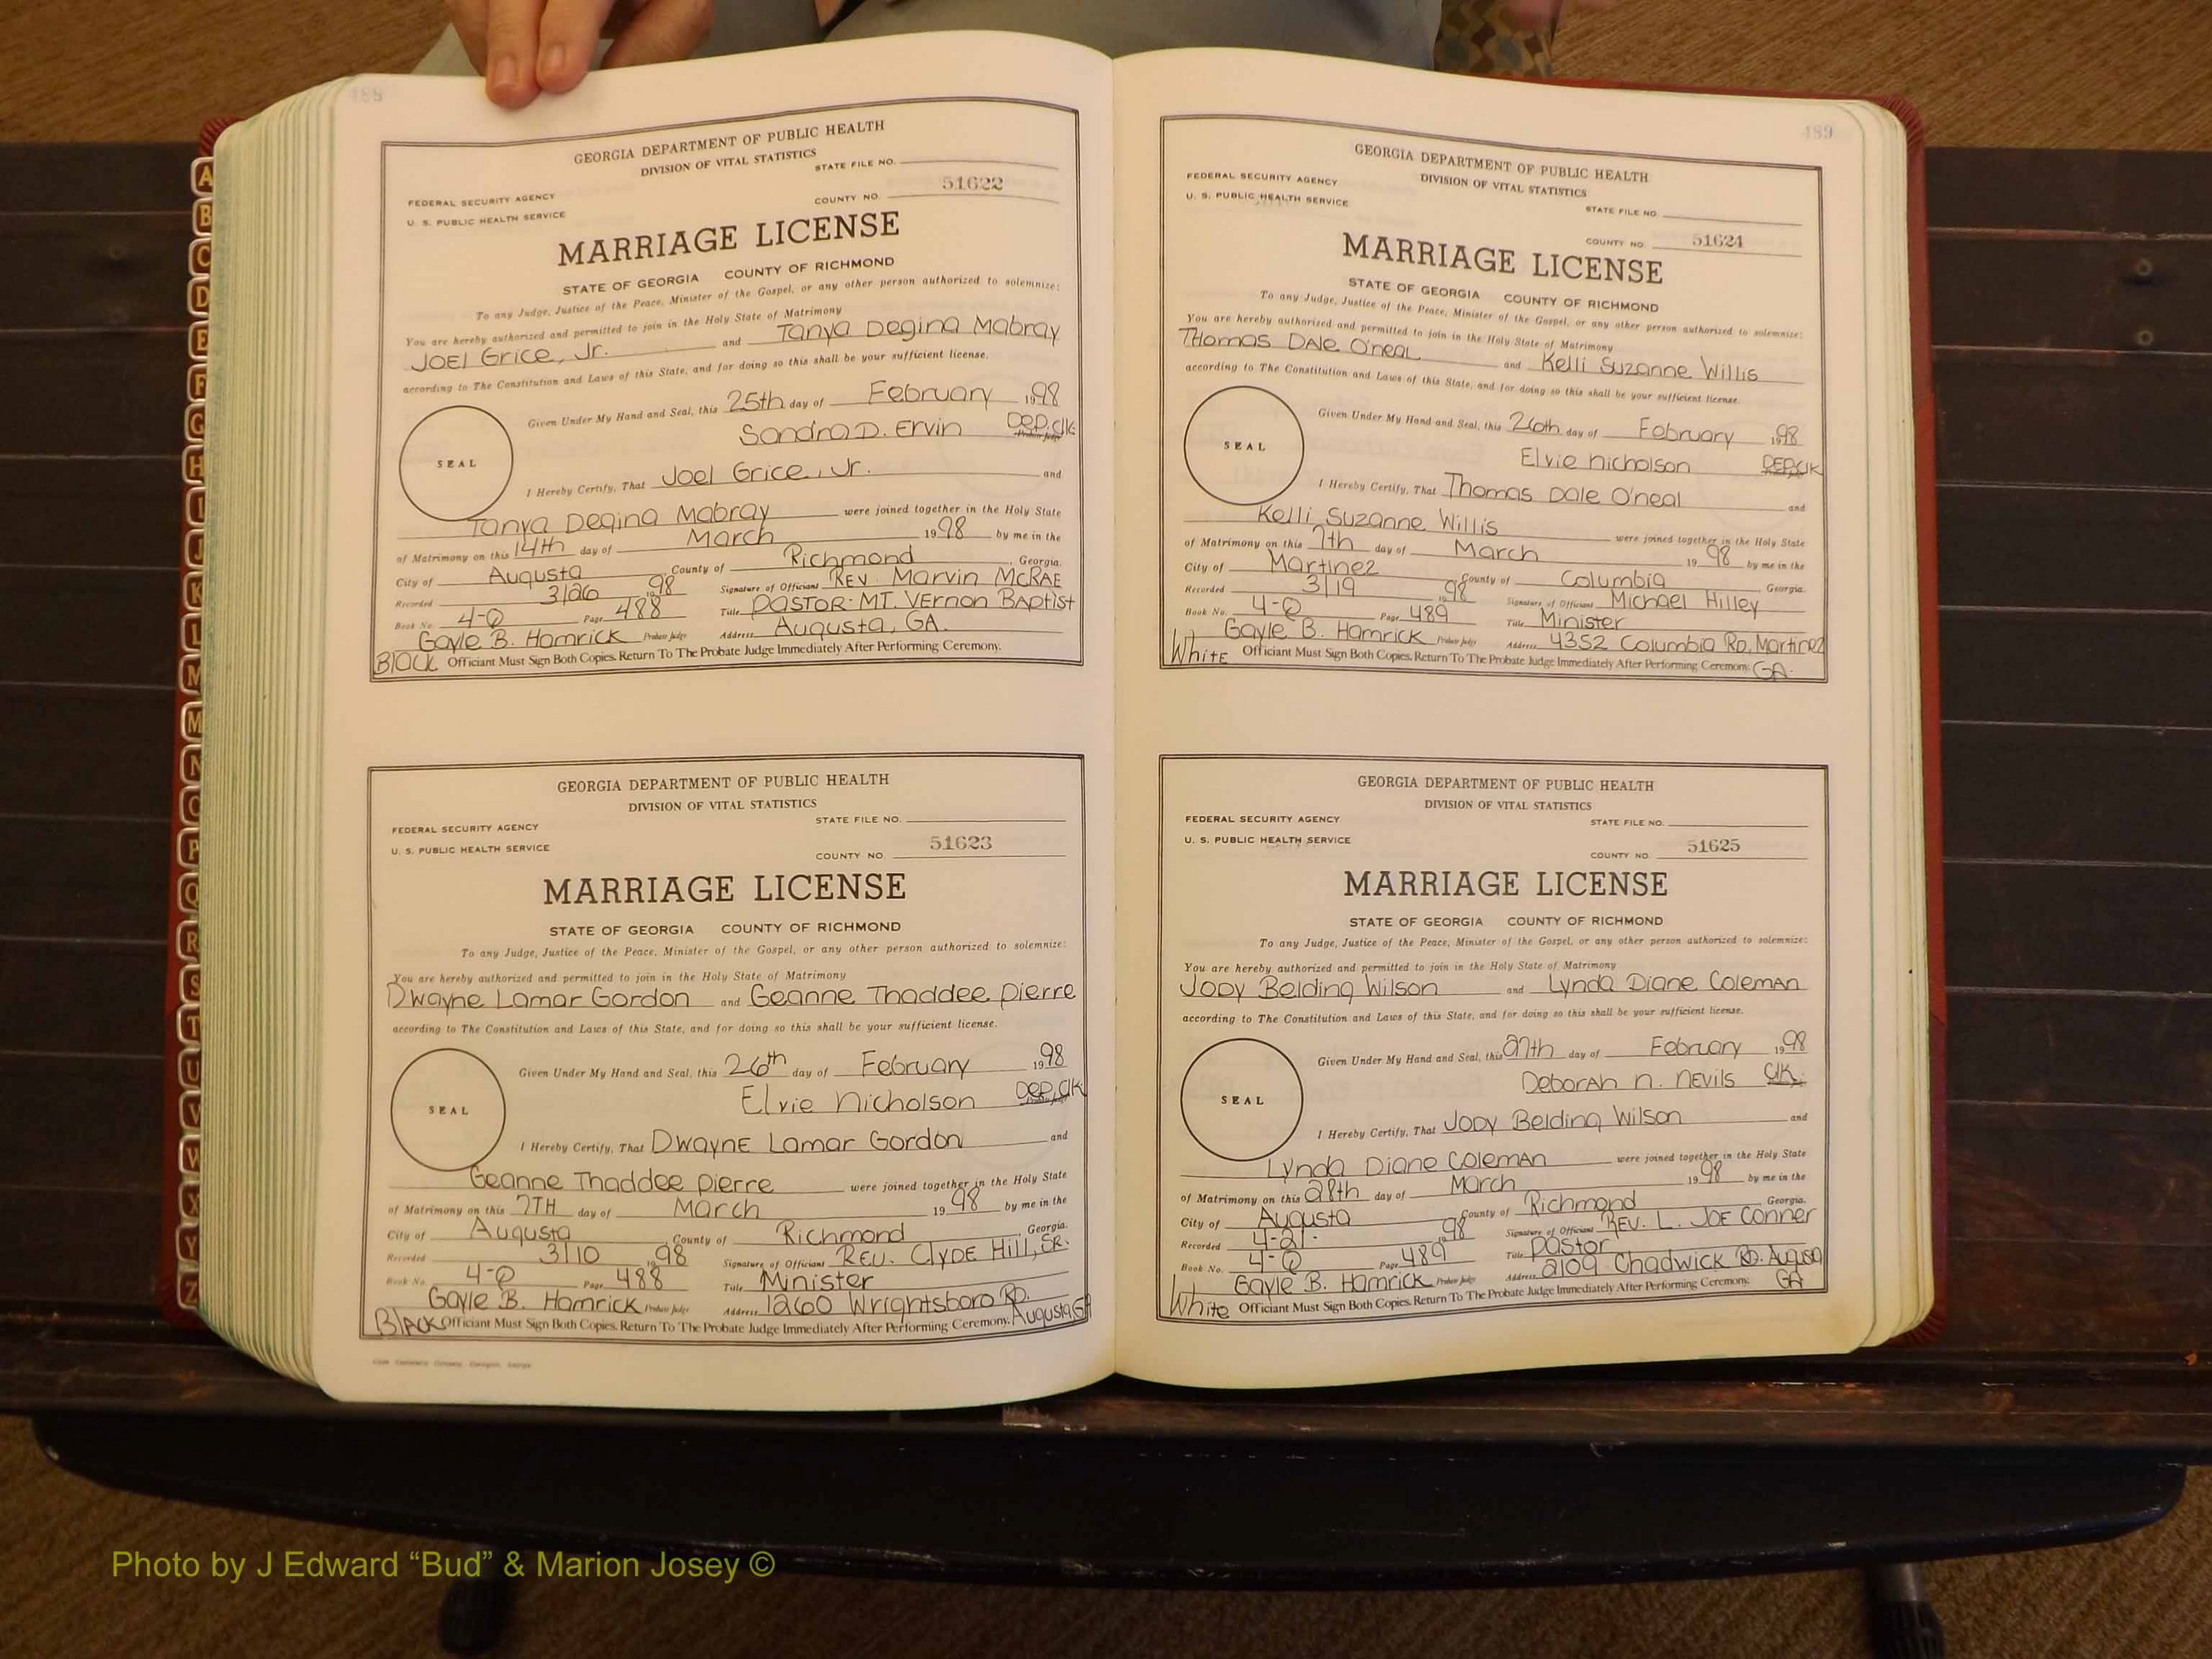 488
GEORGIA DEPARTMENT OF PUBLIC HEALTH
DIVISION OF VITAL STATISTICS
STATE FILE NO.
FEDERAL SECURITY AGENCY
51622
U. S. PUBLIC HEALTH SERVICE
COUNTY NO.
MARRIAGE LICENSE
STATE OF GEORGIA COUNTY OF RICHMOND
To any Judge, Justice of the Peace, Minister of the Gospel, or any other person authorized to solemnize:
You are hereby authorized and permitted to join in the Holy State of Matrimony
JOEL Grice, Jr. and Tanya Degina Mabray
according to The Constitution and Laws of this State, and for doing so this shall be your sufficient license.
Given Under My Hand and Seal, this 25th day of February 1998
Sandra D. Ervin DEP. Clk
SEAL
I Hereby Certify, That Joel Grice, Jr. and
Tanya Degina Mabray were joined together in the Holy State
of Matrimony on this 14th day of March 1998 by me in the
City of Augusta, County of Richmond, Georgia.
Recorded 3/26 1998 Signature of Officiant REV. Marvin McRAE
Book No. 4-Q Page 488 Title PASTOR-MT. Vernon BAptist
Gayle B. Hamrick Probate Judge Address Augusta, GA.
Black Officiant Must Sign Both Copies. Return To The Probate Judge Immediately After Performing Ceremony.
GEORGIA DEPARTMENT OF PUBLIC HEALTH
DIVISION OF VITAL STATISTICS
STATE FILE NO.
FEDERAL SECURITY AGENCY
51623
U. S. PUBLIC HEALTH SERVICE
COUNTY NO.
MARRIAGE LICENSE
STATE OF GEORGIA COUNTY OF RICHMOND
To any Judge, Justice of the Peace, Minister of the Gospel, or any other person authorized to solemnize:
You are hereby authorized and permitted to join in the Holy State of Matrimony
Dwayne Lamar Gordon and Geanne Thaddee pierre
according to The Constitution and Laws of this State, and for doing so this shall be your sufficient license.
Given Under My Hand and Seal, this 26th day of February 1998
Elvie Nicholson DEP. Clk
SEAL
I Hereby Certify, That DwaynE Lamar Gordon and
Geanne Thaddee pierre were joined together in the Holy State
of Matrimony on this 7TH day of March 1998 by me in the
City of Augusta, County of Richmond Georgia.
Recorded 3/10 1998 Signature of Officiant REV. ClyDE Hill, SR.
Book No. 4-Q Page 488 Title Minister
Gayle B. Hamrick Probate Judge Address 1260 Wrightsboro RD.
BlAck Officiant Must Sign Both Copies. Return To The Probate Judge Immediately After Performing Ceremony. Augusta, GA
489
GEORGIA DEPARTMENT OF PUBLIC HEALTH
DIVISION OF VITAL STATISTICS
FEDERAL SECURITY AGENCY
U. S. PUBLIC HEALTH SERVICE
STATE FILE NO.
COUNTY NO. 51624
MARRIAGE LICENSE
STATE OF GEORGIA COUNTY OF RICHMOND
To any Judge, Justice of the Peace, Minister of the Gospel, or any other person authorized to solemnize:
You are hereby authorized and permitted to join in the Holy State of Matrimony
THomas DAle O'neal and Kelli Suzanne Willis
according to The Constitution and Laws of this State, and for doing so this shall be your sufficient license.
Given Under My Hand and Seal, this 26th day of February 1998
Elvie nicholson DEP. Clk
SEAL
I Hereby Certify, That Thomas Dale O'neal and
Kelli Suzanne Willis were joined together in the Holy State
of Matrimony on this 7th day of March 1998 by me in the
City of Martinez County of Columbia Georgia.
Recorded 3/19 1998 Signature of Officiant Michael Hilley
Book No. 4-Q Page 489 Title Minister
Gayle B. Hamrick Probate Judge Address 4352 Columbia RD. Martinez
White Officiant Must Sign Both Copies. Return To The Probate Judge Immediately After Performing Ceremony. GA.
GEORGIA DEPARTMENT OF PUBLIC HEALTH
DIVISION OF VITAL STATISTICS
FEDERAL SECURITY AGENCY
STATE FILE NO.
U. S. PUBLIC HEALTH SERVICE
COUNTY NO. 51625
MARRIAGE LICENSE
STATE OF GEORGIA COUNTY OF RICHMOND
To any Judge, Justice of the Peace, Minister of the Gospel, or any other person authorized to solemnize:
You are hereby authorized and permitted to join in the Holy State of Matrimony
JODY Belding Wilson and Lynda Diane ColemAn
according to The Constitution and Laws of this State, and for doing so this shall be your sufficient license.
Given Under My Hand and Seal, this 27th day of February 1998
DeborAh n. nevils Clk.
SEAL
I Hereby Certify, That JODY Belding Wilson and
Lynda Diane ColemAn were joined together in the Holy State
of Matrimony on this 28th day of March 1998 by me in the
City of Augusta County of Richmond Georgia.
Recorded 4-21- 1998 Signature of Officiant REV. L. JOE Conner
Book No. 4-Q Page 489 Title Pastor
Gayle B. Hamrick Probate Judge Address 2109 Chadwick RD. Augusta
White Officiant Must Sign Both Copies. Return To The Probate Judge Immediately After Performing Ceremony. GA
A
B
C
D
E
F
G
H
I
J
K
L
M
M
N
O
P
Q
R
S
T
U
V
W
X
Y
Z
Photo by J Edward “Bud” & Marion Josey ©